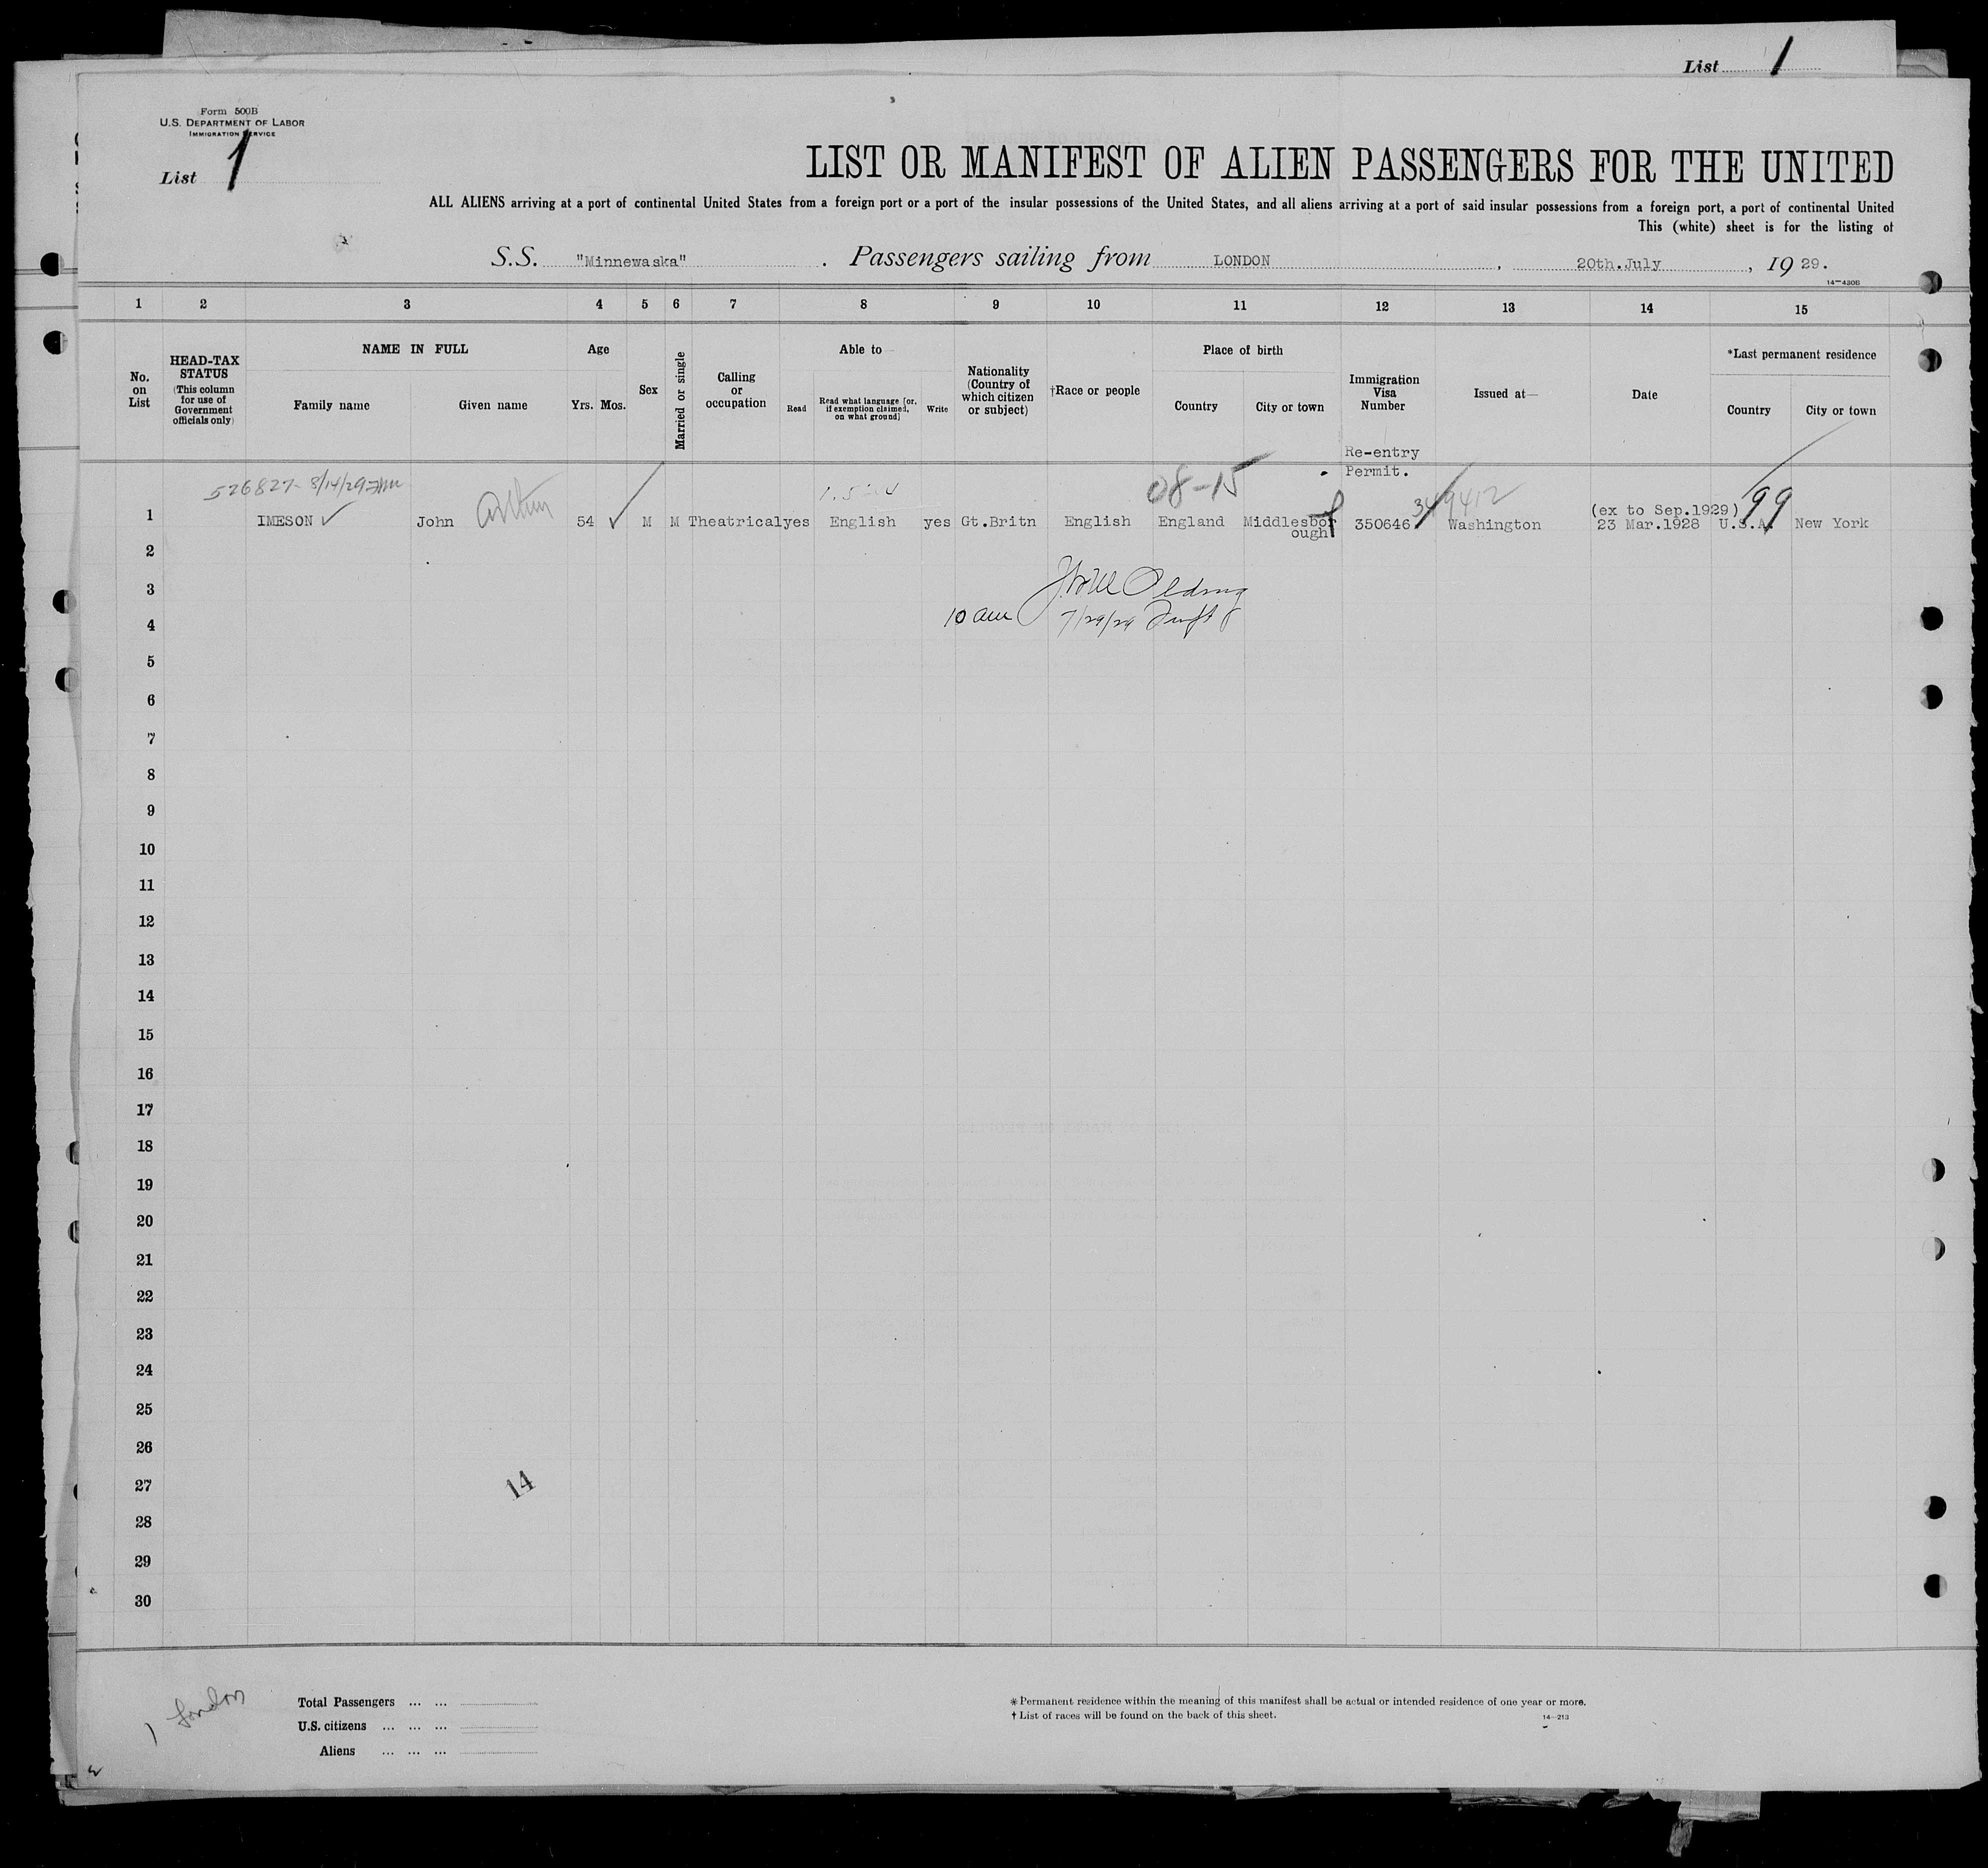 List 1
Form 500B
U.S. DEPARTMENT OF LABOR
IMMIGRATION SERVICE
List 1
LIST OR MANIFEST OF ALIEN PASSENGERS FOR THE UNITED
ALL ALIENS arriving at a port of continental United States from a foreign port or a port of the insular possessions of the United States, and all aliens arriving at a port of said insular possessions from a foreign port, a port of continental United
This (white) sheet is for the listing of
S.S. "Minnewaska". Passengers sailing from LONDON, 20th.July, 1929.
14—430B
1 2 3 4 5 6 7 8 9 10 11 12 13 14 15
No. on List
HEAD-TAX STATUS (This column for use of Government officials only)
NAME IN FULL
Family name Given name
Age
Yrs. Mos.
Sex
Married or single
Calling or occupation
Able to
Read Read what language [or, if exemption claimed, on what ground] Write
Nationality (Country of which citizen or subject)
†Race or people
Place of birth
Country City or town
Immigration Visa Number
Issued at—
Date
*Last permanent residence
Country City or town
Re-entry
Permit.
526827- 8/14/29 08-15
349412
(ex to Sep.1929)
1 IMESON John Arthur 54 M M Theatrical yes English yes Gt.Britn English England Middlesbor 350646 Washington 23 Mar.1928 U.S.A. 99 New York
ough
2
3
10 am 7/29/29
4
5
6
7
8
9
10
11
12
13
14
15
16
17
18
19
20
21
22
23
24
25
26
27
14
28
29
30
1 London
Total Passengers ... ...
U.S. citizens ... ... ...
Aliens ... ... ...
* Permanent residence within the meaning of this manifest shall be actual or intended residence of one year or more.
† List of races will be found on the back of this sheet.
14—213